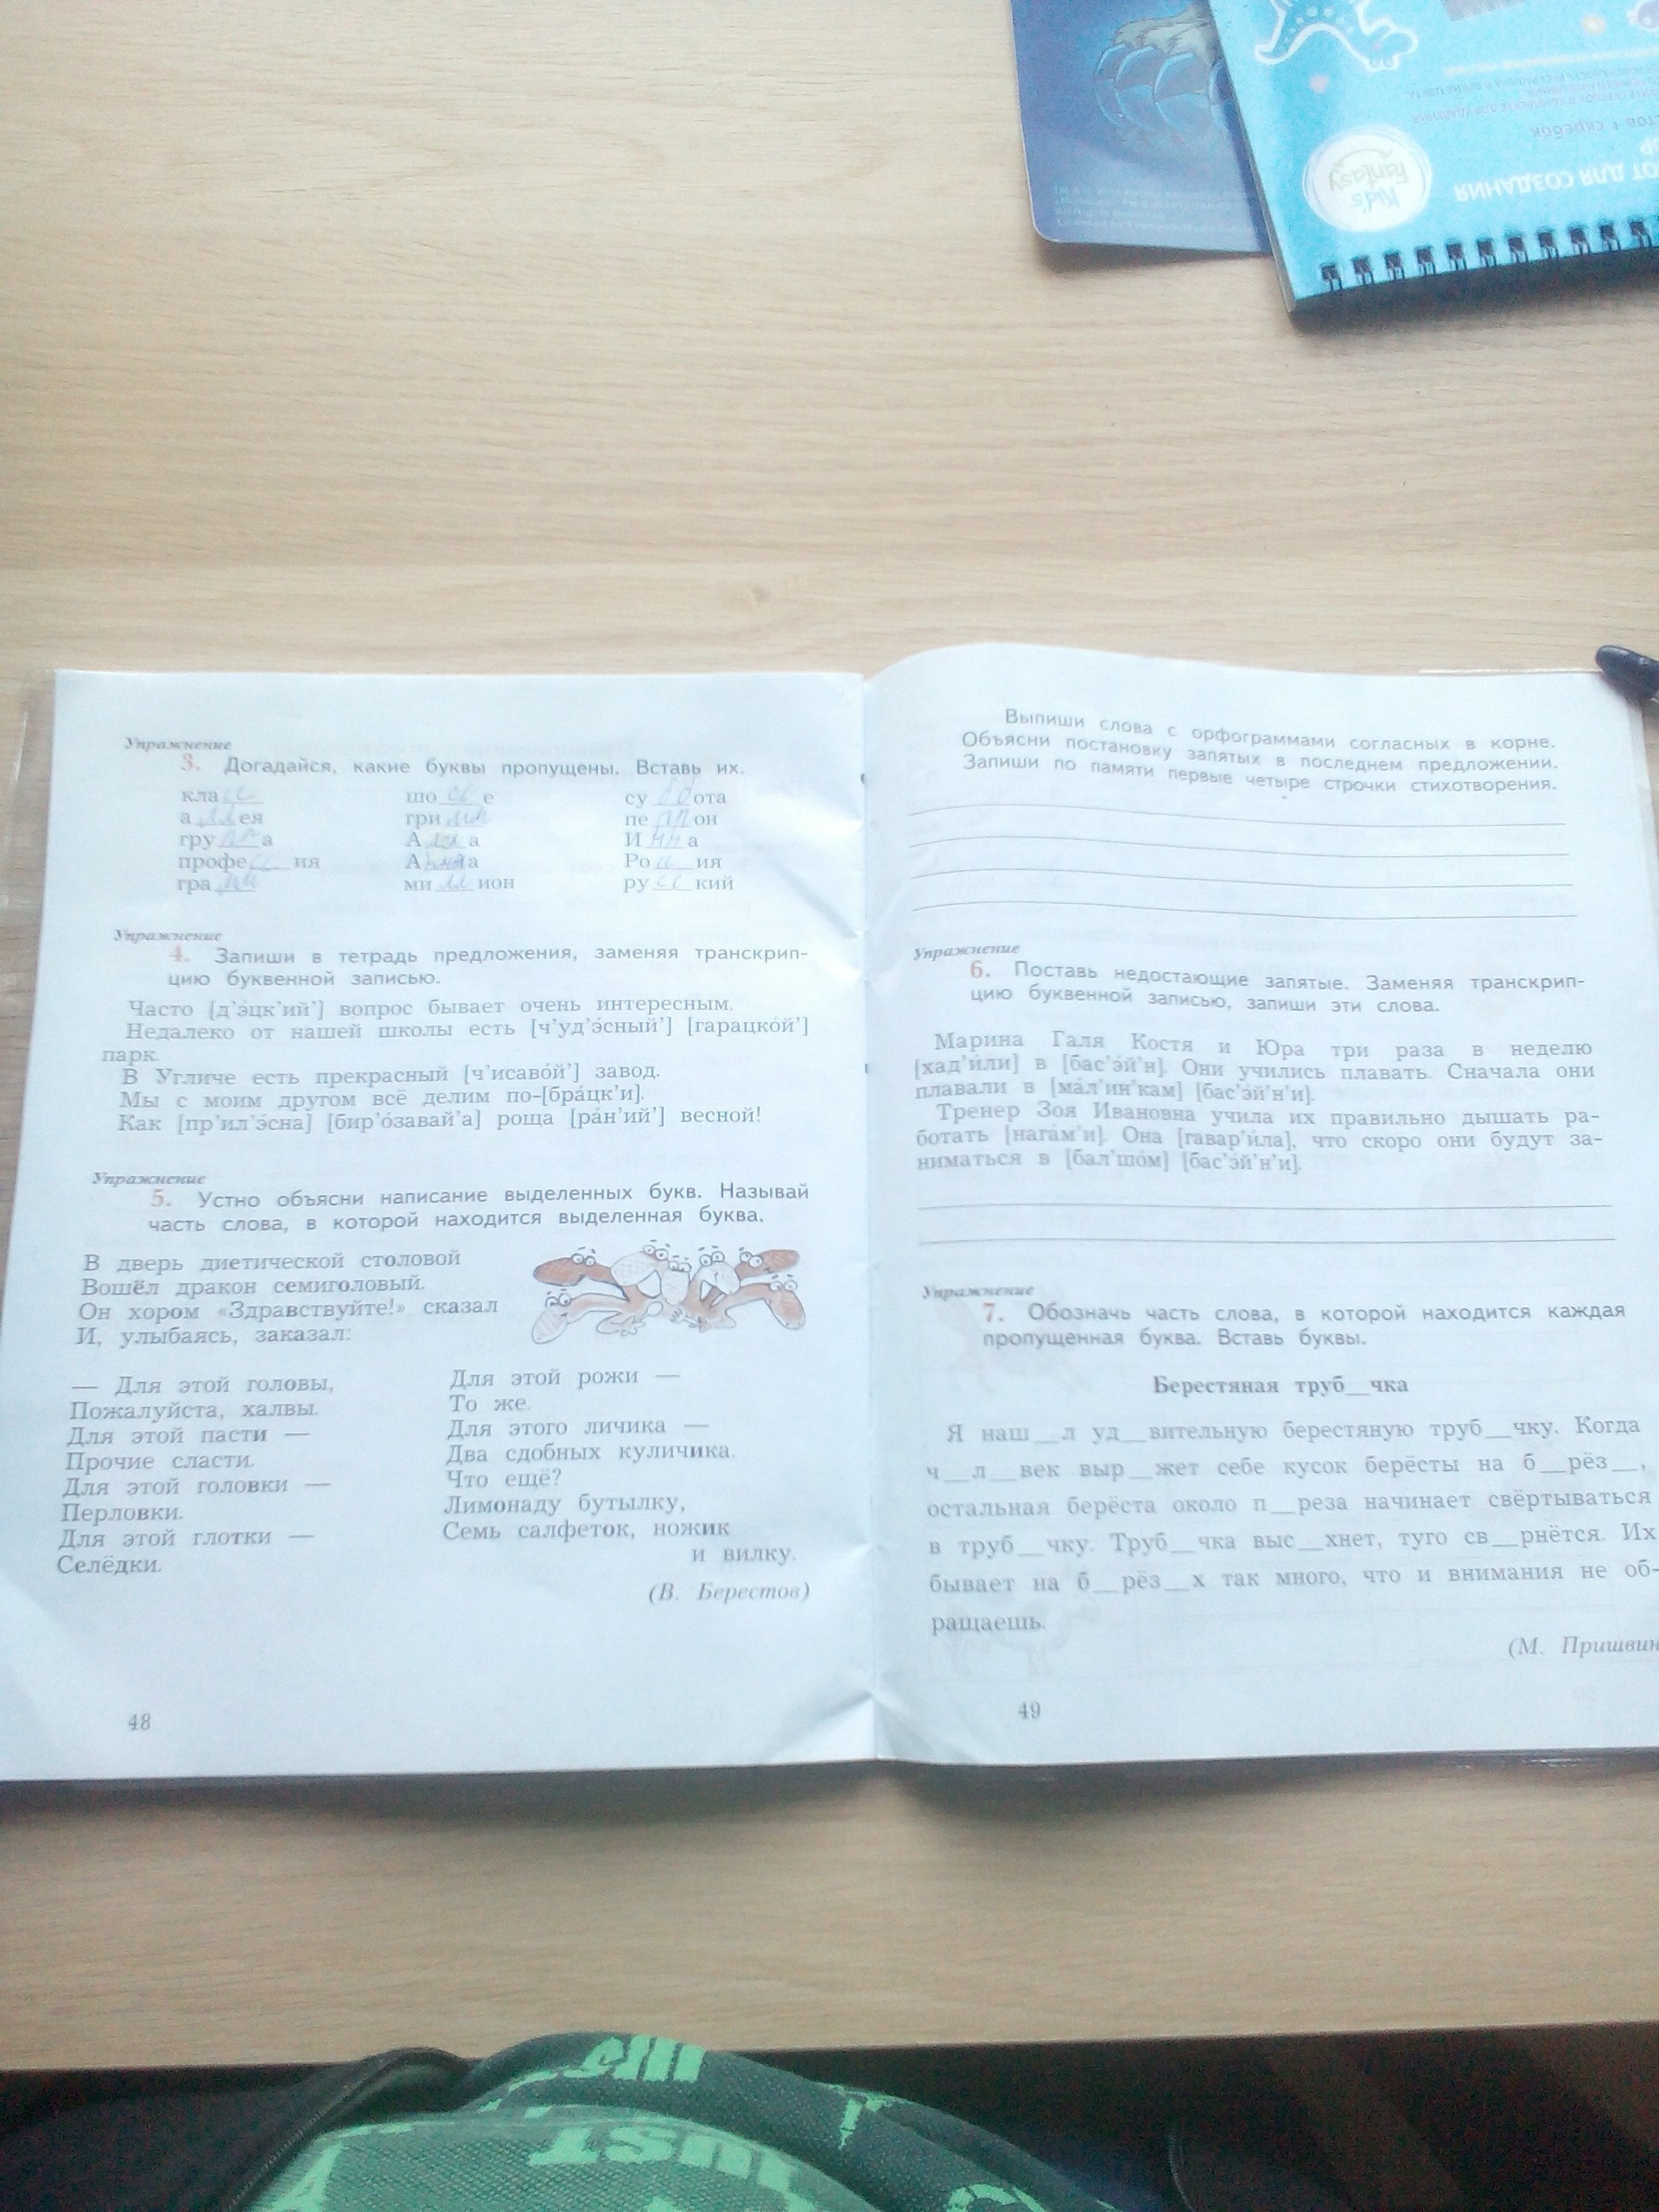 Kid's
Fantasy
скребок
ДЛЯ СОЗДАНИЯ
Упражнение
3. Догадайся, какие буквы пропущены. Вставь их.
класс шоссе суббота
аллея грипп перрон
группа Алла Инна
профессия Анна Россия
грамм миллион русский
Упражнение
4. Запиши в тетрадь предложения, заменяя транскрип-
цию буквенной записью.
Часто [д'э́цк'ий'] вопрос бывает очень интересным.
Недалеко от нашей школы есть [ч'уд'э́сный'] [гарацко́й']
парк.
В Угличе есть прекрасный [ч'исаво́й'] завод.
Мы с моим другом всё делим по-[бра́цк'и].
Как [пр'ил'э́сна] [бир'о́завай'а] роща [ра́н'ий'] весной!
Упражнение
5. Устно объясни написание выделенных букв. Называй
часть слова, в которой находится выделенная буква.
В дверь диетической столовой
Вошёл дракон семиголовый.
Он хором «Здравствуйте!» сказал
И, улыбаясь, заказал:
— Для этой головы,
Пожалуйста, халвы.
Для этой пасти —
Прочие сласти.
Для этой головки —
Перловки.
Для этой глотки —
Селёдки.
Для этой рожи —
То же.
Для этого личика —
Два сдобных куличика.
Что ещё?
Лимонаду бутылку,
Семь салфеток, ножик
и вилку.
(В. Берестов)
48
Выпиши слова с орфограммами согласных в корне.
Объясни постановку запятых в последнем предложении.
Запиши по памяти первые четыре строчки стихотворения.
Упражнение
6. Поставь недостающие запятые. Заменяя транскрип-
цию буквенной записью, запиши эти слова.
Марина Галя Костя и Юра три раза в неделю
[хад'и́ли] в [бас'э́й'н]. Они учились плавать. Сначала они
плавали в [ма́л'ин'кам] [бас'э́й'н'и].
Тренер Зоя Ивановна учила их правильно дышать ра-
ботать [нага́м'и]. Она [гавар'и́ла], что скоро они будут за-
ниматься в [бал'шо́м] [бас'э́й'н'и].
Упражнение
7. Обозначь часть слова, в которой находится каждая
пропущенная буква. Вставь буквы.
Берестяная труб__чка
Я наш__л уд__вительную берестяную труб__чку. Когда
ч__л__век выр__жет себе кусок берёсты на б__рёз__,
остальная берёста около п__реза начинает свёртываться
в труб__чку. Труб__чка выс__хнет, туго св__рнётся. Их
бывает на б__рёз__х так много, что и внимания не об-
ращаешь.
(М. Пришвин
49
JUST